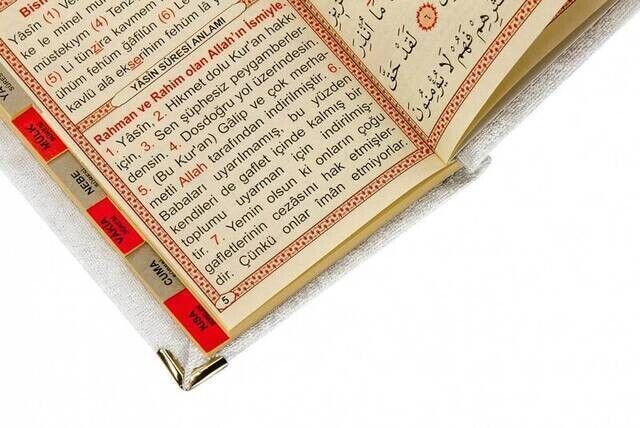 Bism
Yâsin (1) Ve
ke le minel mü
müstekıym (4) Tenz
(5) Li tünzira kavmem
ühüm fehüm ğâfilûn (6) Le
kavlü alâ ekserihim fehüm lâ y
YÂSİN SÛRESİ ANLAMI
Rahman ve Rahim olan Allah'ın İsmiyle
1. Yâsin, 2. Hikmet dolu Kur'an hakkı
için. 3. Sen şüphesiz peygamberler-
densin. 4. Dosdoğru yol üzerindesin.
5. (Bu Kur'an) Gâlip ve çok merha-
metli Allah tarafından indirilmiştir. 6.
Babaları uyarılmamış, bu yüzden
kendileri de gaflet içinde kalmış bir
toplumu uyarman için indirilmiş-
tir. 7. Yemin olsun ki onların çoğu
gafletlerinin cezâsını hak etmişler-
dir. Çünkü onlar îmân etmiyorlar.
5
مَا اُنْذِرَ
لَقَدْ حَقَّ
فَهُمْ لَا يُؤْمِنُونَ
MÜLK
NEBE
VAKIA
CUMA
KISA